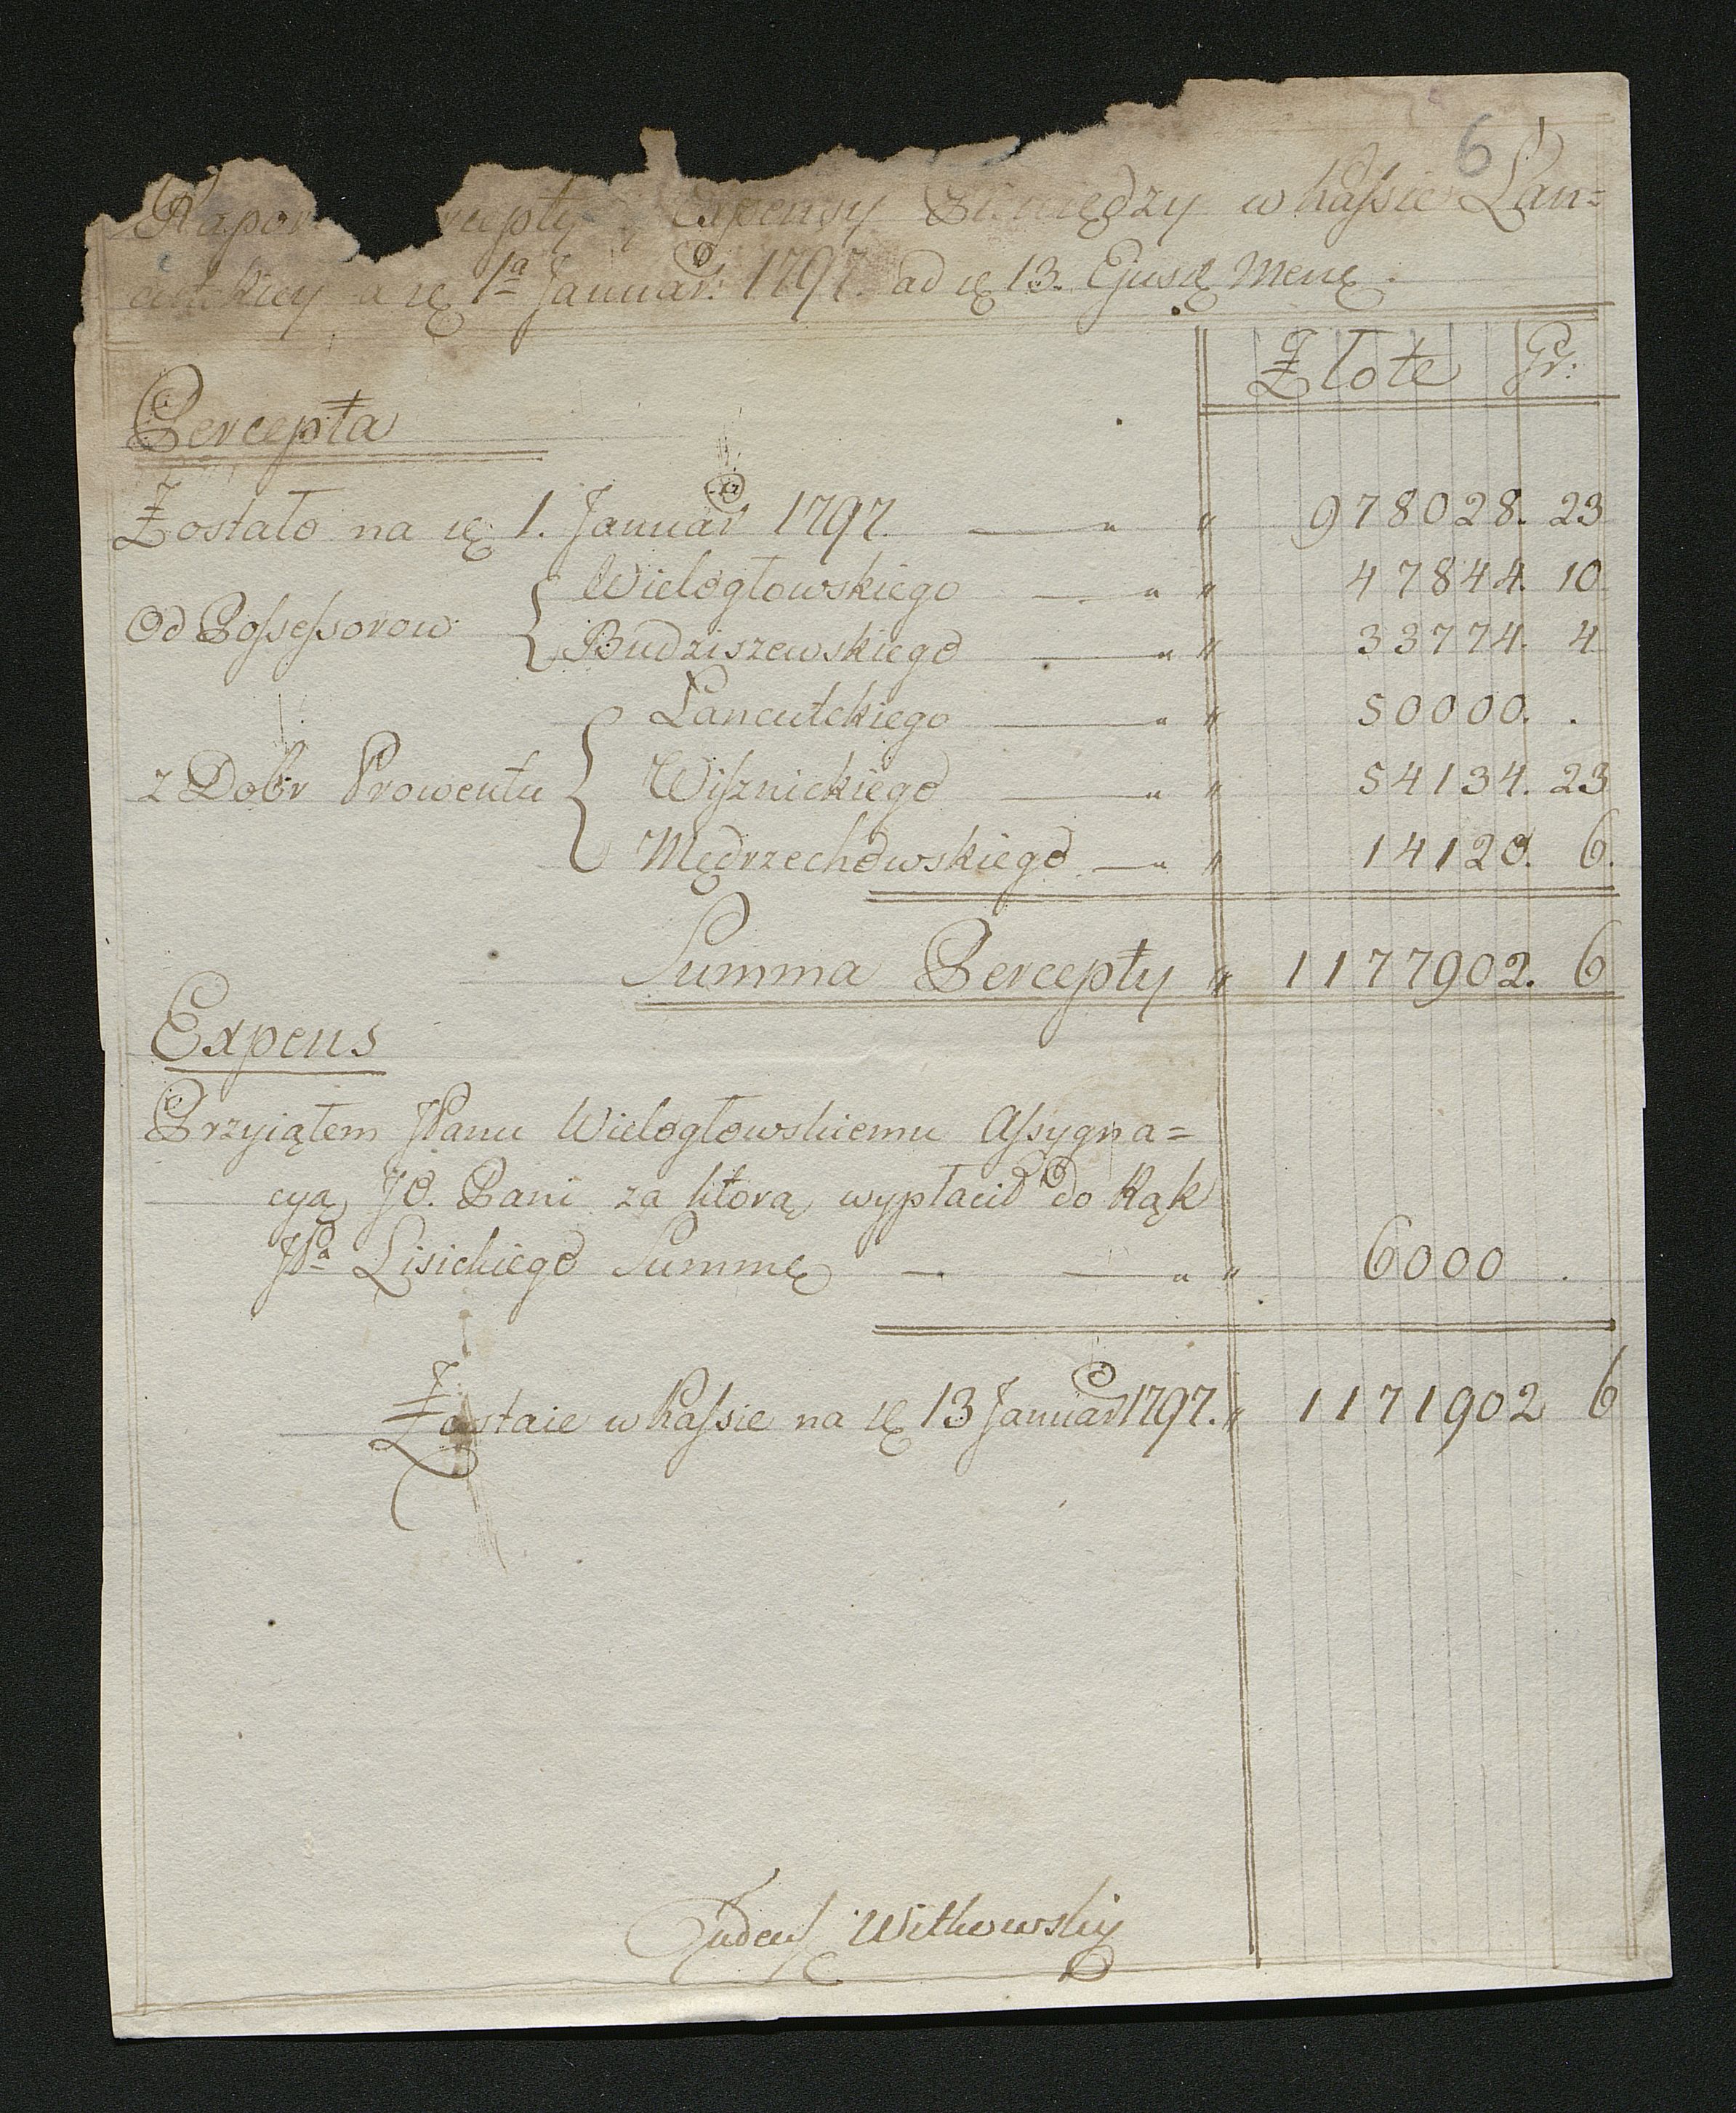 6
Rapor rcepty y Expensy Pieniędzy w Kaſsie Łan=
cutckiey a ię 1ª Januar: 1797. ad ię 13. Ejusę Menę.
Złote Gr.
Percepta
Zostało na ię 1. Januar 1797. — " " 978028. 23
Od Poſseſsorow { Wielogłowskiego — " " 47844. 10
Budziszewskiego — " " 33774. 4
z Dobr Prowentu { Łancutckiego — " " 50000. .
Wiſznickiego — " " 54134. 23
Mędrzechowskiego — " " 14120. 6.
Summa Percepty " 1177902. 6
Expens
Przyiąłem JPanu Wielogłowskiemu Aſsygna=
cyą JO. Pani za ktorą wypłacił do Rąk
JPª Lisickiego Summę — — " " 6000 .
Zostaie w Kaſsie na ię 13 Januar 1797. " 1171902 6
Tadeuſz Witkowskij